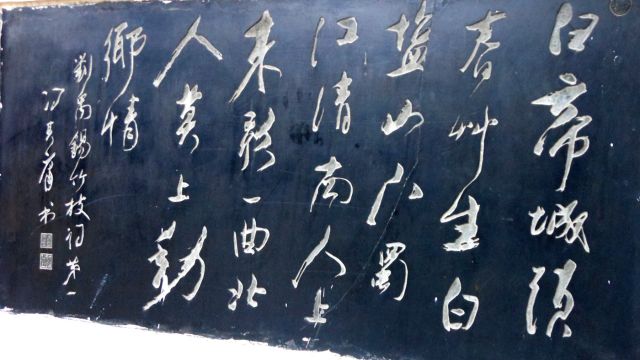 白帝城頭
春艸生白
塩山下蜀
江清南人上
来歌一曲北
人莫上動
鄉情
劉禹錫竹枝詞第一
冯其庸书